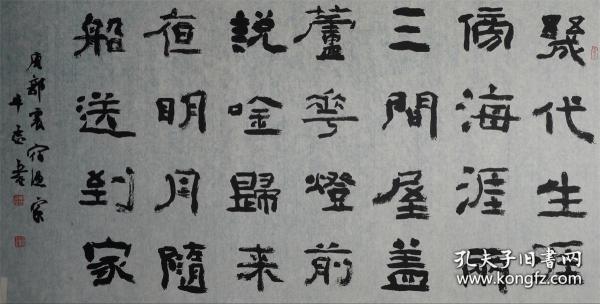 幾代生涯
傍海涯兩
三間屋盖
蘆華燈前
説唫歸来
夜明月隨
船送到家
唐郭震宿漁家
書
孔夫子旧书网
www.kongfz.com